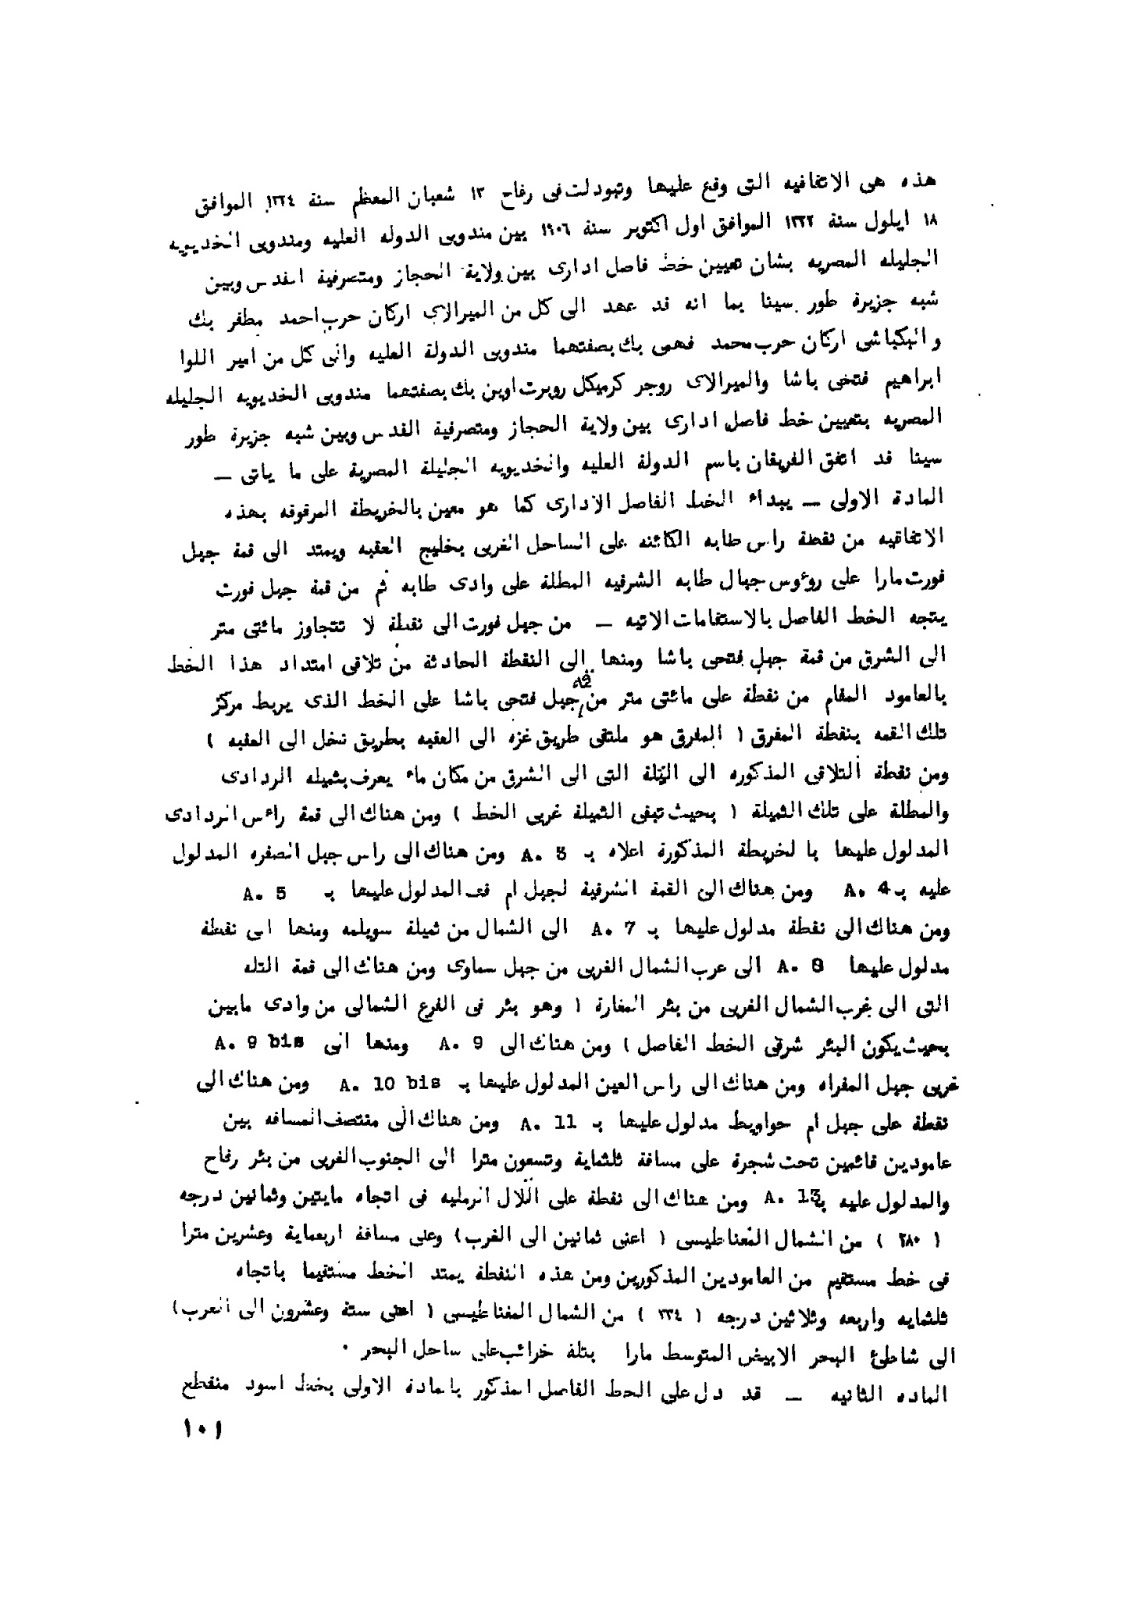 هذه هى الاتفاقيه التى وقع عليها وتبودلت فى رفاح ١٣ شعبان المعظم سنة ١٣٢٤ الموافق
١٨ ايلول سنة ١٣٢٢ الموافق اول اكتوبر سنة ١٩٠٦ بين مندوبى الدوله العليه ومندوبى الخديويه
الجليله المصريه بشان تعيين خط فاصل ادارى بين ولاية الحجاز ومتصرفية القدس وبين
شبه جزيرة طور سينا بما انه قد عهد الى كل من الميرالاى اركان حرب احمد مظفر بك
والبكباشى اركان حرب محمد فهمى بك بصفتهما مندوبى الدولة العليه والى كل من امير اللوا
ابراهيم فتحى باشا والميرالاى روجر كرميكل روبرت اوين بك بصفتهما مندوبى الخديويه الجليله
المصريه بتعيين خط فاصل ادارى بين ولاية الحجاز ومتصرفية القدس وبين شبه جزيرة طور
سينا قد اتفق الفريقان باسم الدولة العليه والخديويه الجليلة المصرية على ما ياتى —
المادة الاولى — يبداء الخط الفاصل الادارى كما هو معين بالخريطة المرفوقه بهذه
الاتفاقيه من نقطة راس طابه الكائنه على الساحل الغربى بخليج العقبه ويمتد الى قمة جبل
فورت مارا على روءوس جبال طابه الشرقيه المطلة على وادى طابه ثم من قمة جبل فورت
يتجه الخط الفاصل بالاستقامات الاتيه — من جبل فورت الى نقطة لا تتجاوز مائتى متر
الى الشرق من قمة جبل فتحى باشا ومنها الى النقطة الحادثة من تلاقى امتداد هذا الخط
بالعامود المقام من نقطة على مائتى متر من قمة جبل فتحى باشا على الخط الذى يربط مركز
تلك القمه بنقطة المفرق ( المفرق هو ملتقى طريق غزه الى العقبه بطريق نخل الى العقبه )
ومن نقطة التلاقى المذكوره الى التلة التى الى الشرق من مكان ماء يعرف بثميله الردادى
والمطلة على تلك الثميلة ( بحيث تبقى الثميلة غربى الخط ) ومن هناك الى قمة راءس الردادى
المدلول عليها بالخريطة المذكورة اعلاه بـ A. 3 ومن هناك الى راس جبل الصفره المدلول
عليه بـ A. 4 ومن هناك الى القمة الشرقية لجبل ام قف المدلول عليها بـ A. 5
ومن هناك الى نقطة مدلول عليها بـ A. 7 الى الشمال من ثميلة سويلمه ومنها الى نقطة
مدلول عليها A. 8 الى غرب الشمال الغربى من جبل سماوى ومن هناك الى قمة التله
التى الى غرب الشمال الغربى من بئر المغارة ( وهو بئر فى الفرع الشمالى من وادى مابين
بحيث يكون البئر شرقى الخط الفاصل ) ومن هناك الى A. 9 ومنها الى A. 9 bis
غربى جبل المقراه ومن هناك الى راس العين المدلول عليها بـ A. 10 bis ومن هناك الى
نقطة على جبل ام حواويط مدلول عليها بـ A. 11 ومن هناك الى منتصف المسافه بين
عامودين قائمين تحت شجرة على مسافة ثلثماية وتسعون مترا الى الجنوب الغربى من بئر رفاح
والمدلول عليه بـ A. 13 ومن هناك الى نقطة على التلال الرمليه فى اتجاه مايتين وثمانين درجه
( ٢٨٠ ) من الشمال المغناطيسى ( اعنى ثمانين الى الغرب ) وعلى مسافة اربعماية وعشرين مترا
فى خط مستقيم من العامودين المذكورين ومن هذه النقطة يمتد الخط مستقيما باتجاه
ثلثمايه واربعه وثلاثين درجه ( ٣٣٤ ) من الشمال المغناطيسى ( اعنى ستة وعشرون الى الغرب )
الى شاطئ البحر الابيض المتوسط مارا بتلة خرائب على ساحل البحر ٠
الماده الثانيه — قد دل على الخط الفاصل المذكور بالمادة الاولى بخط اسود منقطع
١٠١